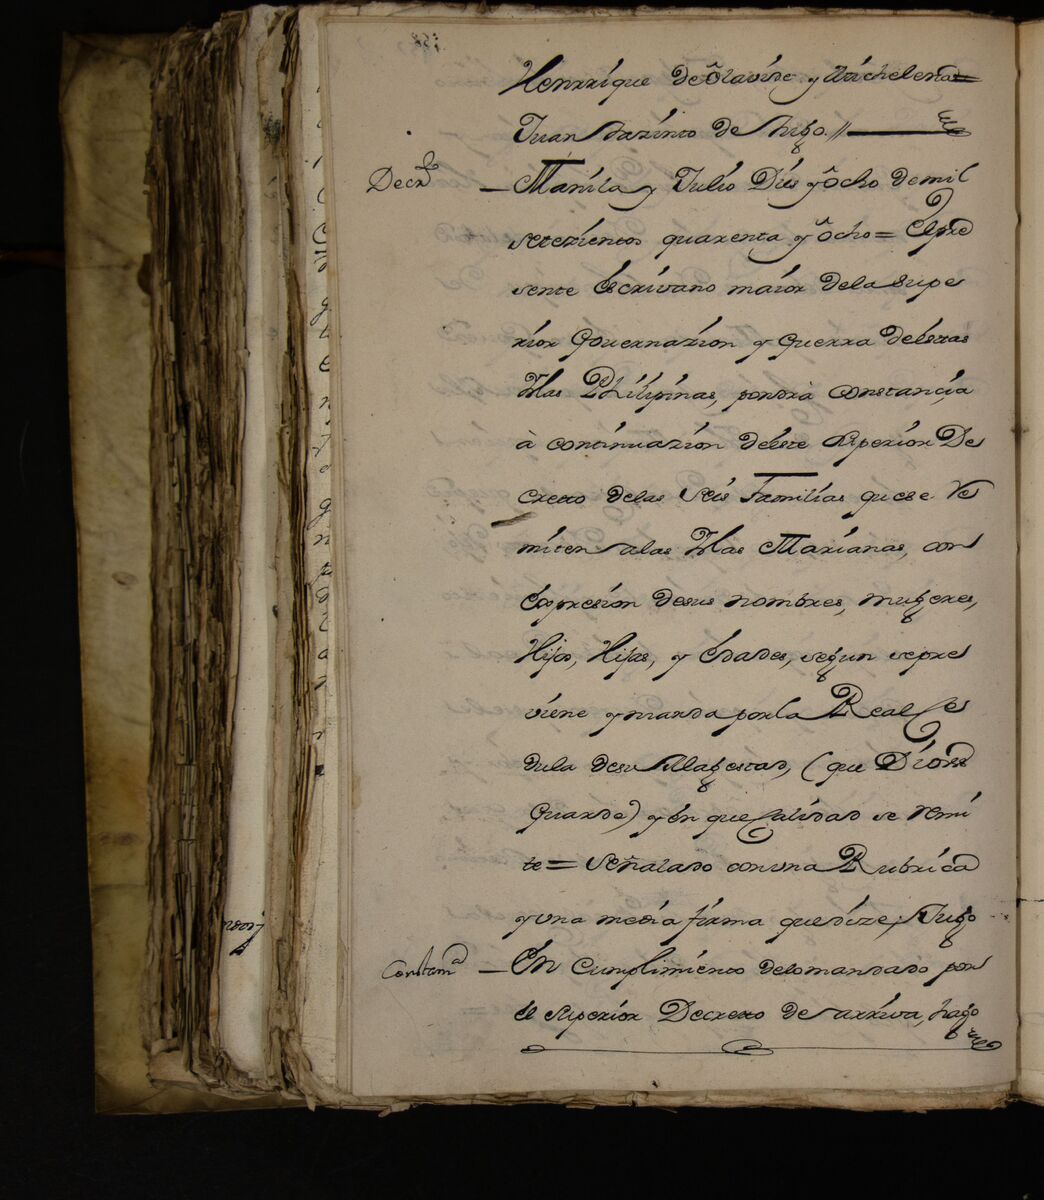 Henrrique de Olavide y Michelena=
Juan Jazinto de Lugo //
Decr.to
Manila y Julio Dies y ôcho de mil
setezientos quarenta y ôcho = El pre
sente Escrivano maior dela supe
rior Governazion y Guerra de estas
Yslas Philipinas, pondrà constancia
à continuazion de este superior De
creto delas seis Familias que se re
miten a las Yslas Marianas, con
expresion de sus nombres, mugeres,
Hijos, Hijas, y edades, segun se pre
viene y manda por la Real Ce
dula de su Magestad, (que Dios
Guarde) y en que calidad se remi
te = señalado con una Rubrica
y una media firma que dize; Lugo
Constan.a
En cumplimiento delo mandado por
el superior Decreto de arriva, hago